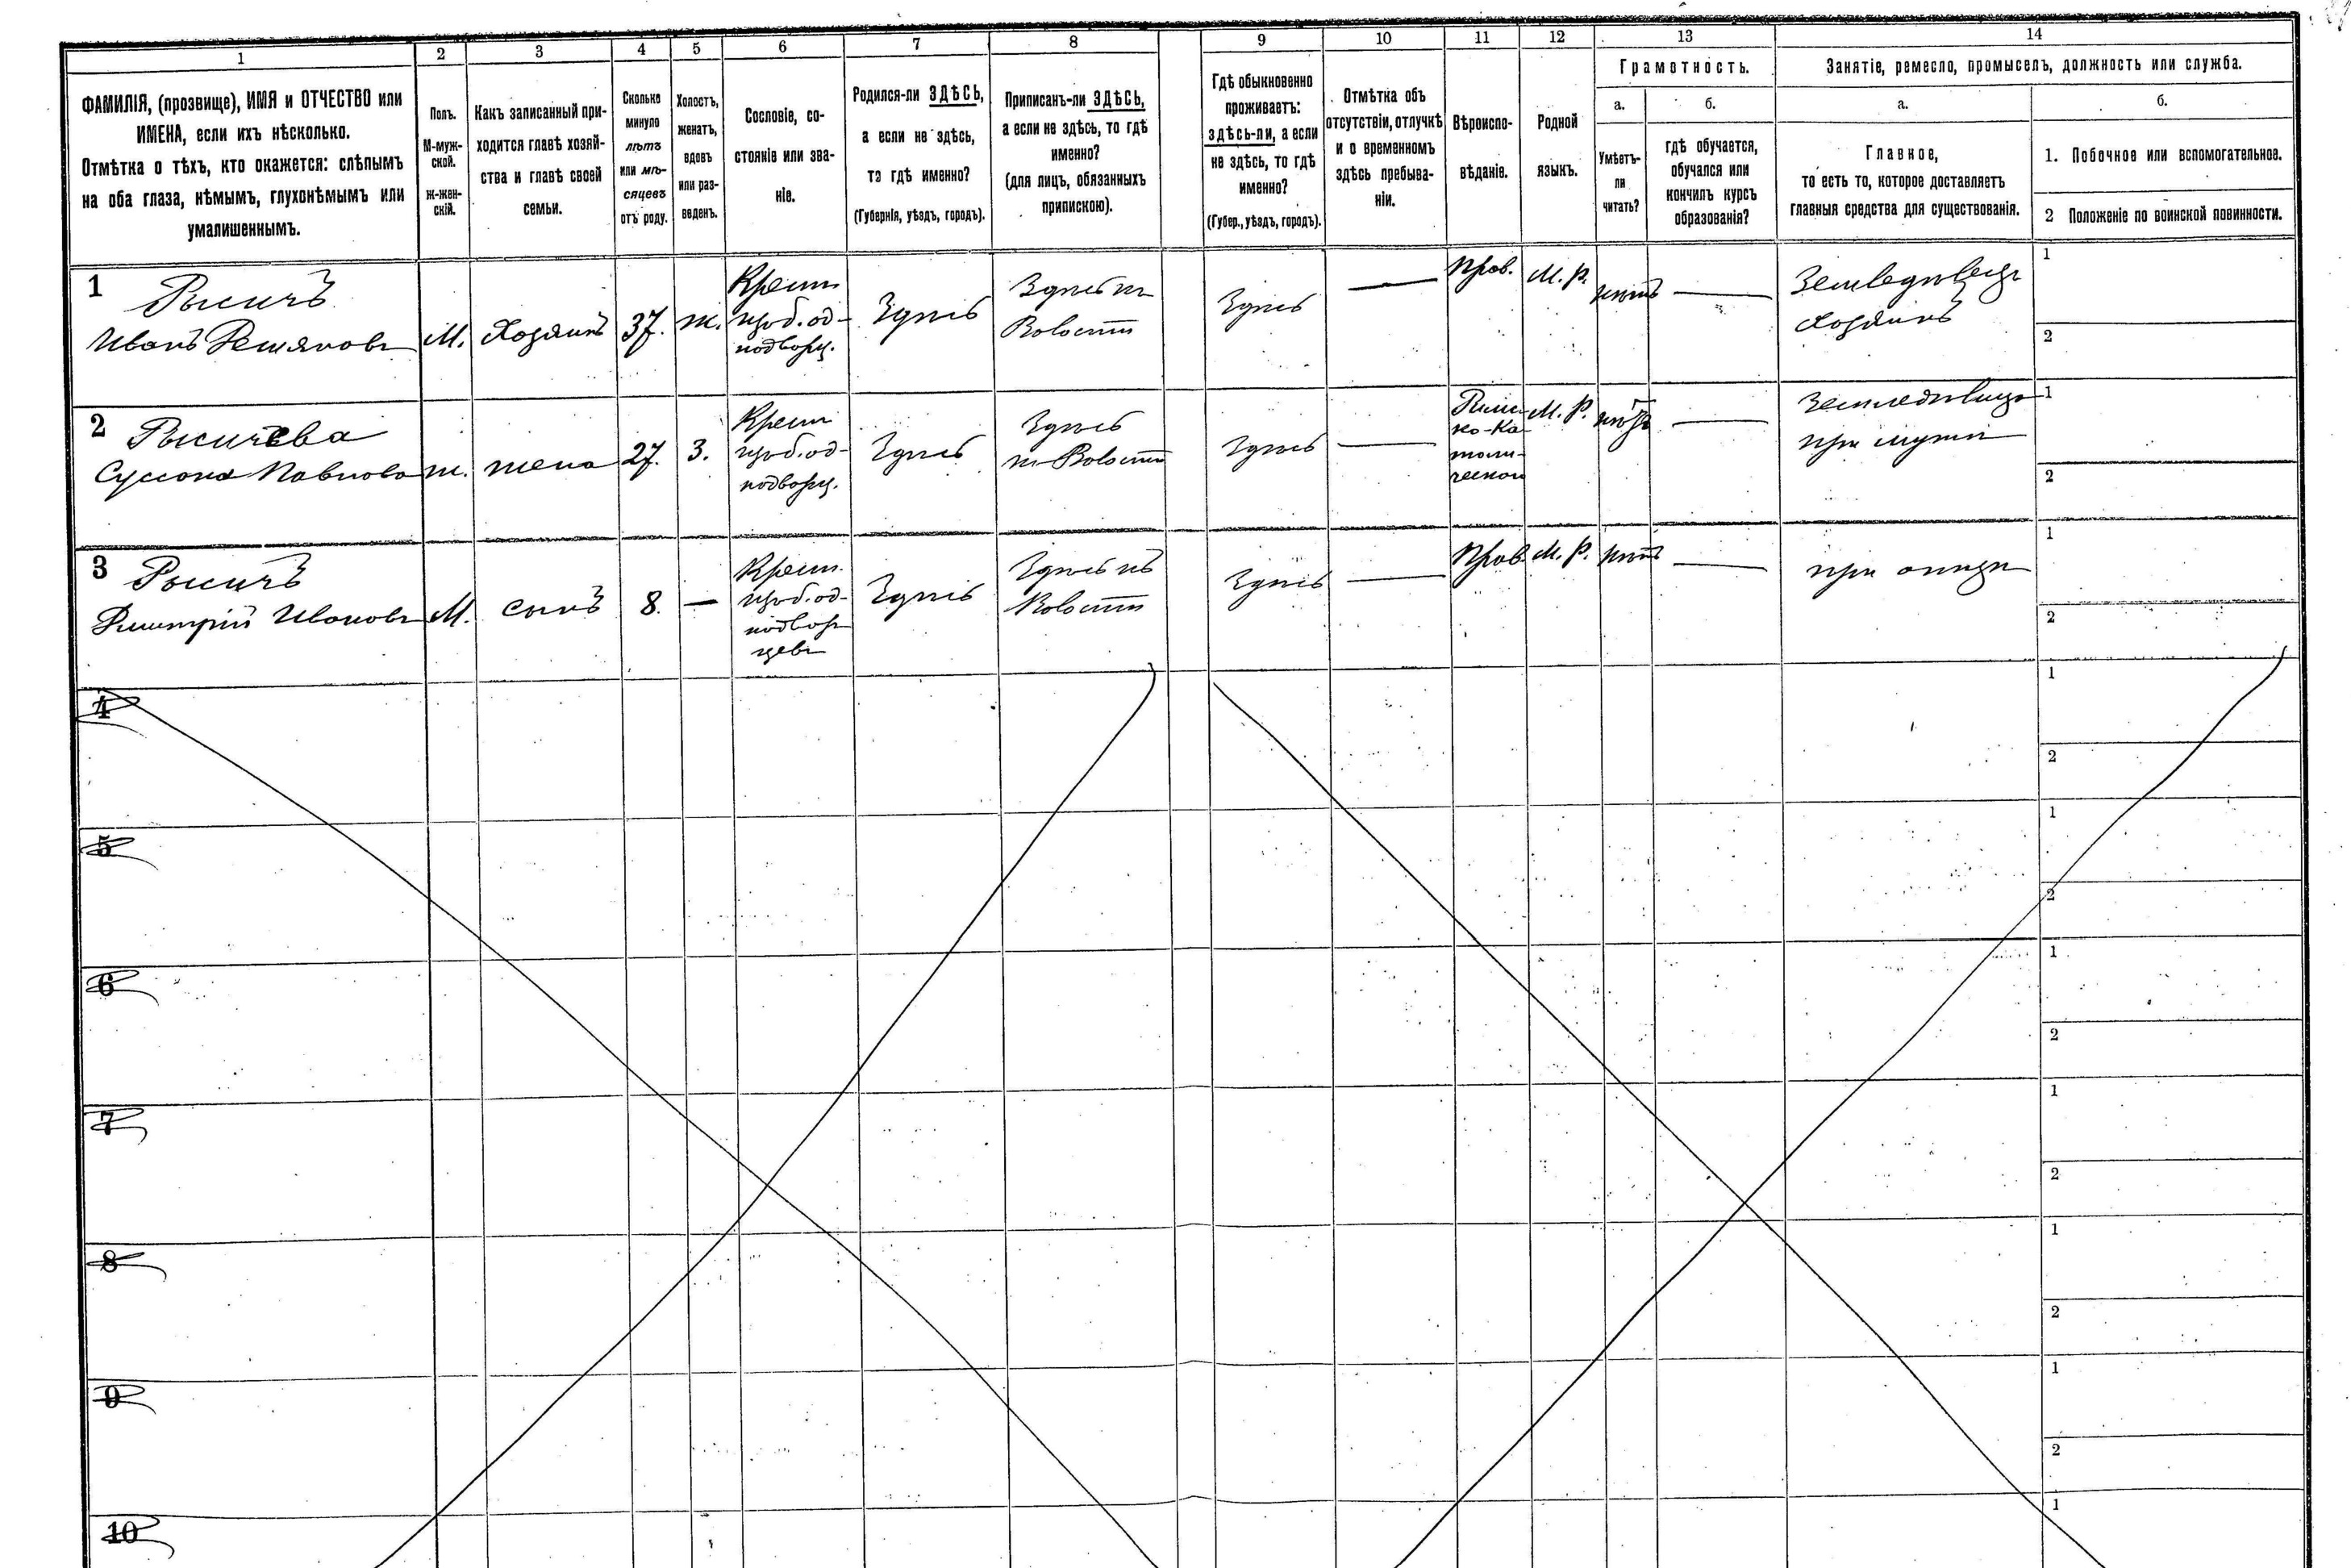 1
2
3
4
5
6
7
8
9
10
11
12
13
14
ФАМИЛІЯ, (прозвище), ИМЯ и ОТЧЕСТВО или
ИМЕНА, если ихъ нѣсколько.
Отмѣтка о тѣхъ, кто окажется: слѣпымъ
на оба глаза, нѣмымъ, глухонѣмымъ или
умалишеннымъ.
Полъ.
М-муж-
ской.
Ж-жен-
скій.
Какъ записанный при-
ходится главѣ хозяй-
ства и главѣ своей
семьи.
Сколько
минуло
лѣтъ
или мѣ-
сяцевъ
отъ роду.
Холостъ,
женатъ,
вдовъ
или раз-
веденъ.
Сословіе, со-
стояніе или зва-
ніе.
Родился-ли ЗДѢСЬ,
а если не здѣсь,
то гдѣ именно?
(Губернія, уѣздъ, городъ).
Приписанъ-ли ЗДѢСЬ,
а если не здѣсь, то гдѣ
именно?
(для лицъ, обязанныхъ
припискою).
Гдѣ обыкновенно
проживаетъ:
здѣсь-ли, а если
не здѣсь, то гдѣ
именно?
(Губер., уѣздъ, городъ).
Отмѣтка объ
отсутствіи, отлучкѣ
и о временномъ
здѣсь пребыва-
ніи.
Вѣроиспо-
вѣданіе.
Родной
языкъ.
Грамотность.
а.
Умѣетъ-
ли
читать?
б.
гдѣ обучается,
обучался или
кончилъ курсъ
образованія?
Занятіе, ремесло, промыселъ, должность или служба.
а.
Главное,
то есть то, которое доставляетъ
главныя средства для существованія.
б.
1. Побочное или вспомогательное.
2 Положеніе по воинской повинности.
1
Рысичъ
Иванъ
М.
Хозяинъ
37.
ж.
Крест.
изъ б. од-
нодворц.
Здѣсь
Здѣсь въ
Волости
Здѣсь
—
Прав.
М. Р.
нѣтъ
—
Земледѣлецъ
Хозяинъ
1
2
2
Рысичева
Сусана Павлова
ж.
жена
27.
З.
Крест
изъ б. од-
нодворц.
Здѣсь
Здѣсь
въ Волости
Здѣсь
—
Рим-
ко-Ка-
толи-
ческой
М. Р.
нѣтъ
—
Земледѣлица
при мужѣ
1
2
3
Рысичъ
Дмитрій Ивановъ
М.
сынъ
8.
—
Крест.
изъ б. од-
нодвор
цевъ
Здѣсь
Здѣсь въ
Волости
Здѣсь
—
Прав.
М. Р.
нѣтъ
—
при отцѣ
1
2
4
1
2
5
1
2
6
1
2
7
1
2
8
1
2
9
1
2
10
1